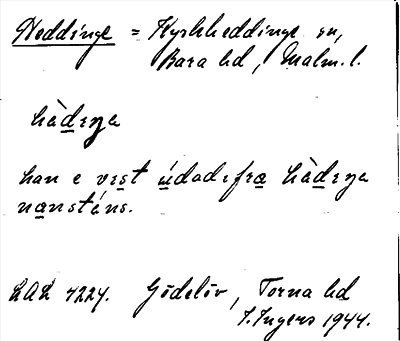 Heddinge = Kyrkheddinge sn,
Bara hd, Malm. l.
hàdeŋa
han e vest údadefra hàdeŋa
nansténs.
LAL 4224. Gödelöv, Torna hd
I. Ingers 1944.